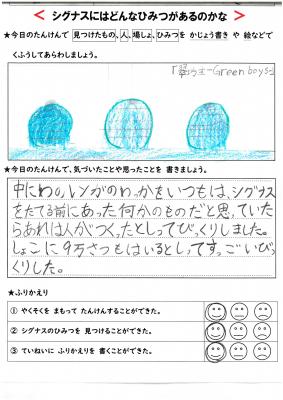 < シグナスにはどんなひみつがあるのかな >
★今日のたんけんで 見つけたもの、人、場しょ、ひみつを かじょう書き や 絵などで
くふうしてあらわしましょう。
Green boys
★今日のたんけんで、気づいたことや思ったことを 書きましょう。
中にわの、レンガのわっかをいつもは、シグナス
をたてる前にあった何かのものだと思っていた
らあれは人がつくったとしってびっくりしました。
しょこに9万さつもはいるとしってすっごいびっ
くりした。
★ふりかえり
① やくそくを まもって たんけんすることができた。
② シグナスのひみつを 見つけることができた。
③ ていねいに ふりかえりを 書くことができた。